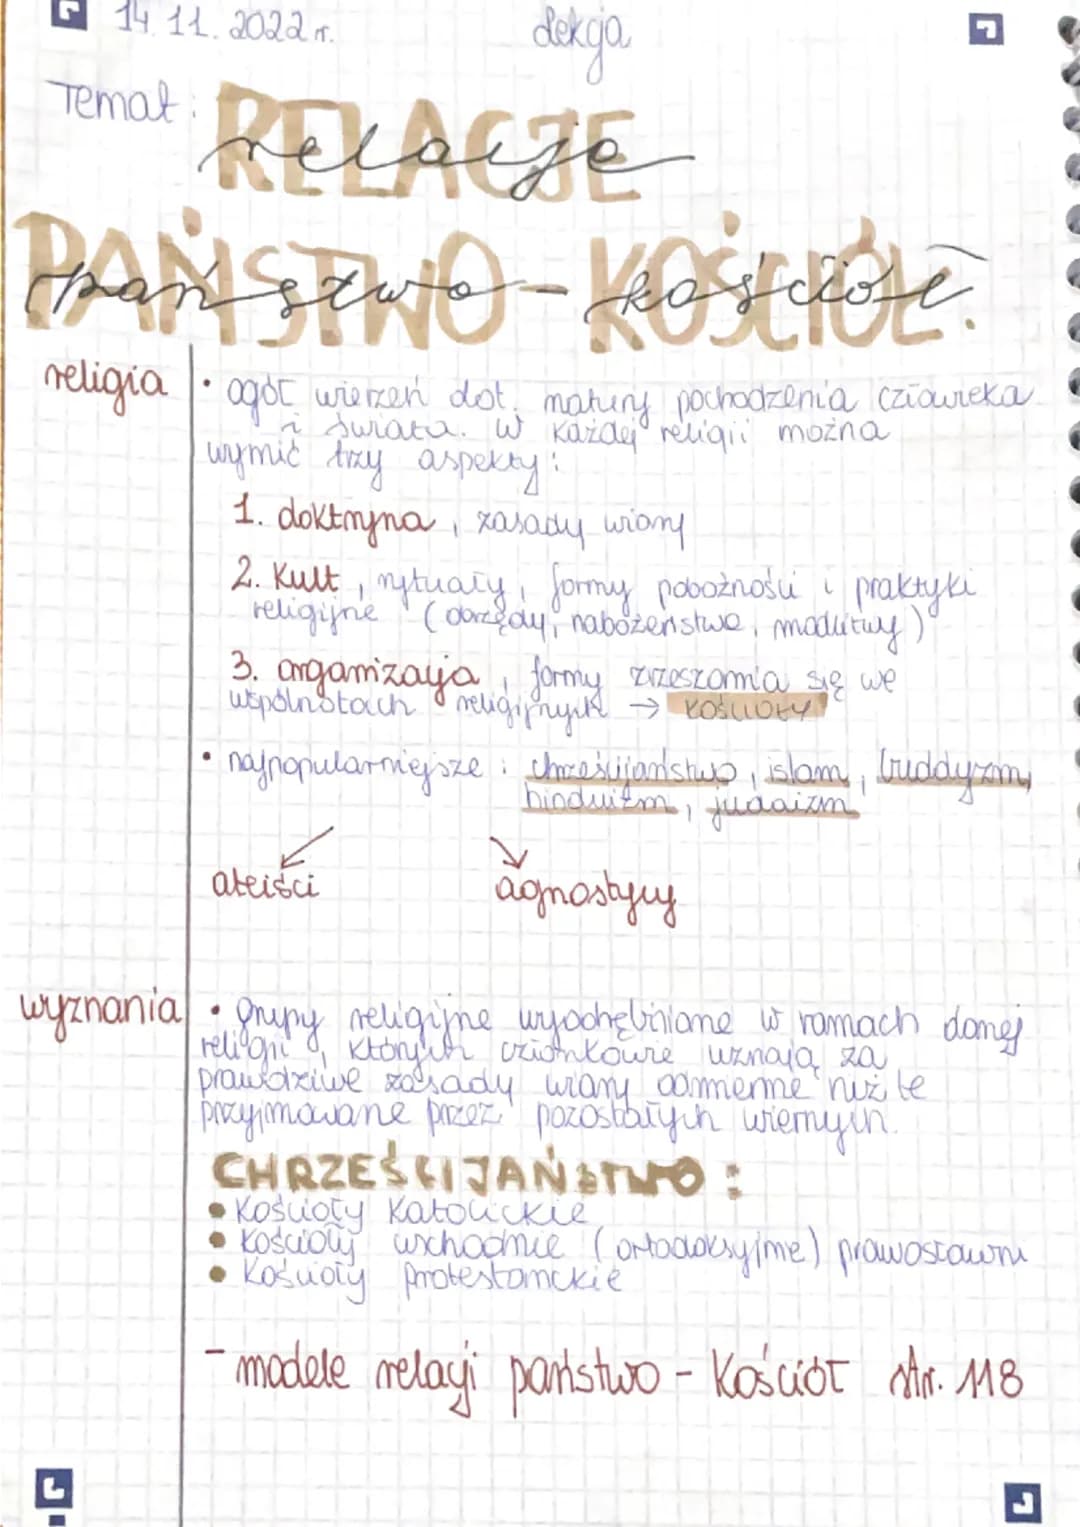 14.11.2022 r. Lekcja
Temat: RELACJE
relacje
PAŃSTWO - KOŚCIÓŁ.
państwo - kościół
religia • ogół wierzeń dot. natury pochodzenia człowieka
i świata. W każdej religii można
wymić trzy aspekty:
1. doktryna, zasady wiary
2. Kult, rytuały, formy pobożności i praktyki
religijne (obrzędy, nabożeństwa, modlitwy)
3. organizacja, formy zrzeszania się we
wspólnotach religijnych → KOŚCIOŁY
• najpopularniejsze: chrześcijaństwo, islam, buddyzm,
hinduizm, judaizm
ateiści agnostycy
wyznania • grupy religijne wyodrębniane w ramach danej
religii, których członkowie uznają za
prawdziwe zasady wiary odmienne niż te
przyjmowane przez pozostałych wiernych.
CHRZEŚCIJAŃSTWO:
• Kościoły Katolickie
• Kościoły wschodnie (ortodoksyjne) prawosławni
• Kościoły protestanckie
- modele relacji państwo - Kościół str. 118